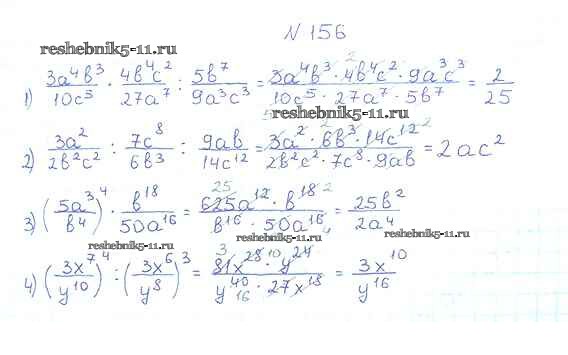 N 156
reshebnik5-11.ru
reshebnik5-11.ru
1) 3a⁴b³/10c⁵ · 4b⁴c²/27a⁷ : 5b⁷/9a³c³ = 3a⁴b³ · 4b⁴c² · 9a³c³/10c⁵ · 27a⁷ · 5b⁷ = 2/25
2) 3a²/2b²c² : 7c⁸/6b³ : 9ab/14c¹² = 3a² · 6b³ · 14c¹²/2b²c² · 7c⁸ · 9ab = 2ac²
reshebnik5-11.ru
3) (5a³/b⁴)⁴ · b¹⁸/50a¹⁶ = 625a¹² · b¹⁸/b¹⁶ · 50a¹⁶ = 25b²/2a⁴
reshebnik5-11.ru
reshebnik5-11.ru
4) (3x⁷/y¹⁰)⁴ : (3x⁶/y⁸)³ = 81x²⁸ · y²⁴/y⁴⁰ · 27x¹⁸ = 3x¹⁰/y¹⁶